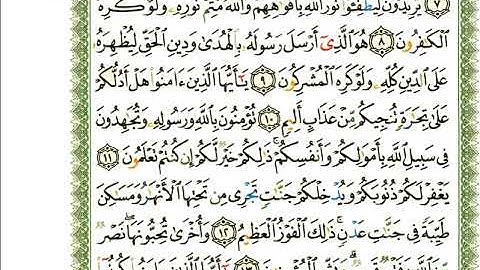 ٧ يُرِيدُونَ لِيُطْفِـُٔوا۟ نُورَ ٱللَّهِ بِأَفْوَٰهِهِمْ وَٱللَّهُ مُتِمُّ نُورِهِۦ وَلَوْ كَرِهَ
ٱلْكَٰفِرُونَ ٨ هُوَ ٱلَّذِىٓ أَرْسَلَ رَسُولَهُۥ بِٱلْهُدَىٰ وَدِينِ ٱلْحَقِّ لِيُظْهِرَهُۥ
عَلَى ٱلدِّينِ كُلِّهِۦ وَلَوْ كَرِهَ ٱلْمُشْرِكُونَ ٩ يَٰٓأَيُّهَا ٱلَّذِينَ ءَامَنُوا۟ هَلْ أَدُلُّكُمْ
عَلَىٰ تِجَٰرَةٍ تُنجِيكُم مِّنْ عَذَابٍ أَلِيمٍ ١٠ تُؤْمِنُونَ بِٱللَّهِ وَرَسُولِهِۦ وَتُجَٰهِدُونَ
فِى سَبِيلِ ٱللَّهِ بِأَمْوَٰلِكُمْ وَأَنفُسِكُمْ ۚ ذَٰلِكُمْ خَيْرٌ لَّكُمْ إِن كُنتُمْ تَعْلَمُونَ ١١
يَغْفِرْ لَكُمْ ذُنُوبَكُمْ وَيُدْخِلْكُمْ جَنَّٰتٍ تَجْرِى مِن تَحْتِهَا ٱلْأَنْهَٰرُ وَمَسَٰكِنَ
طَيِّبَةً فِى جَنَّٰتِ عَدْنٍ ۚ ذَٰلِكَ ٱلْفَوْزُ ٱلْعَظِيمُ ١٢ وَأُخْرَىٰ تُحِبُّونَهَا ۖ نَصْرٌ